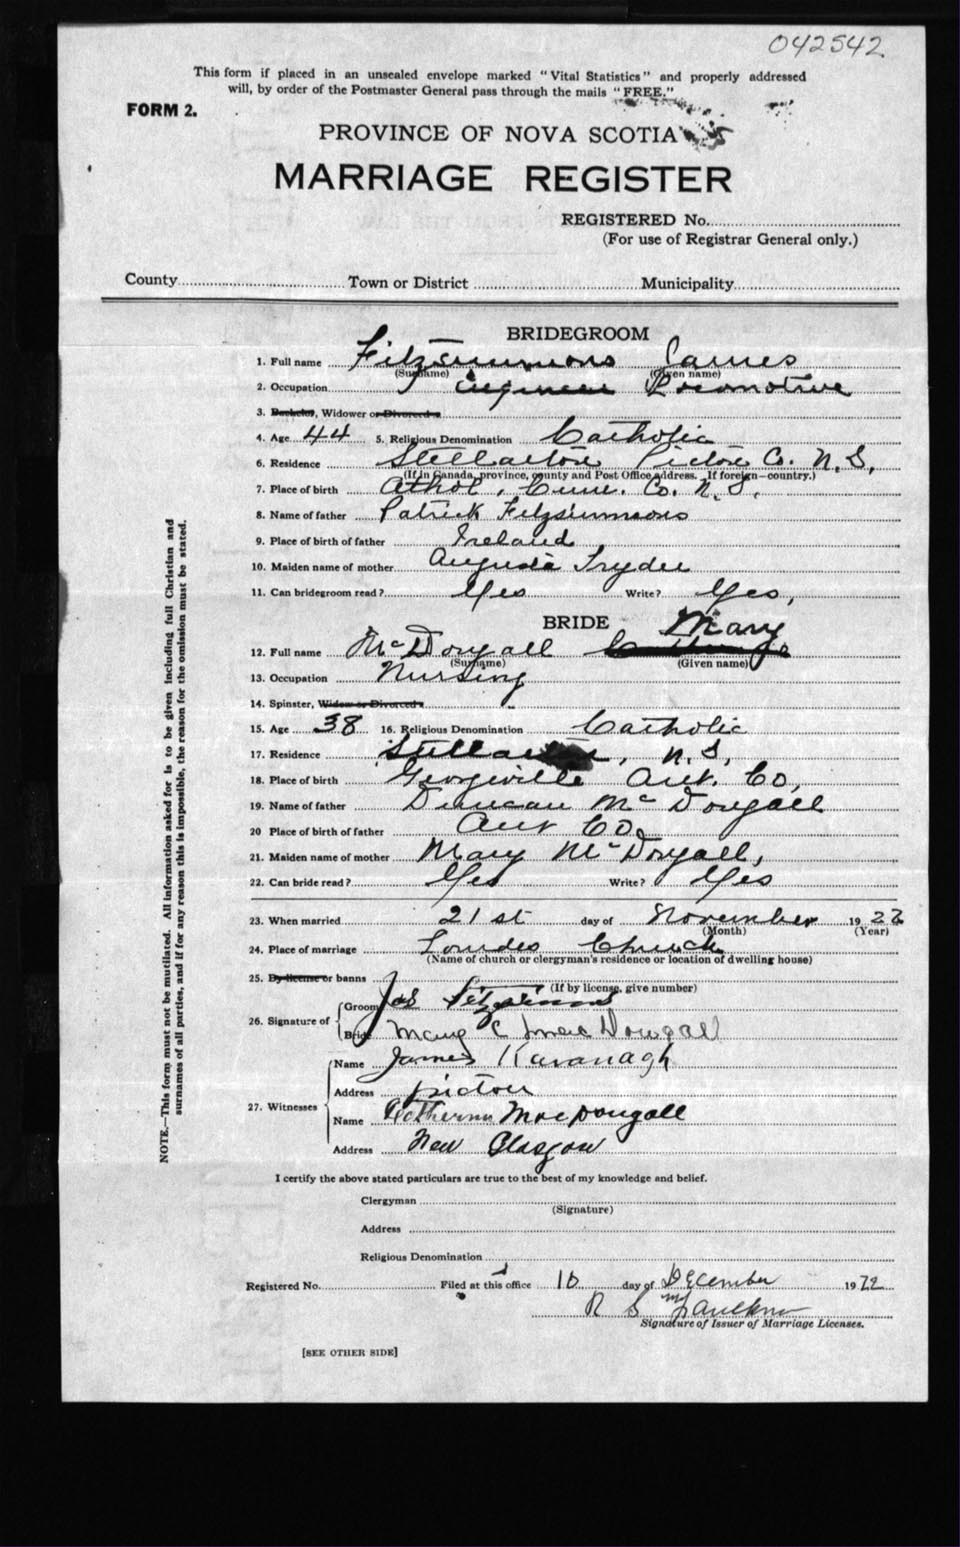 042542
This form if placed in an unsealed envelope marked "Vital Statistics" and properly addressed
will, by order of the Postmaster General pass through the mails "FREE."
FORM 2.
PROVINCE OF NOVA SCOTIA
MARRIAGE REGISTER
REGISTERED No.
(For use of Registrar General only.)
County Town or District Municipality
BRIDEGROOM
1. Full name Fitzsimmons James
(Surname) (Given name)
2. Occupation Engineer Locomotive
3. Bachelor, Widower or Divorced
4. Age 44 5. Religious Denomination Catholic
6. Residence Stellarton Pictou Co. N.S.
(If in Canada, province, county and Post Office address. If foreign—country.)
7. Place of birth Athol, Cum. Co. N.S.
8. Name of father Patrick Fitzsimmons
9. Place of birth of father Ireland
10. Maiden name of mother Augusta
11. Can bridegroom read? Yes Write? Yes,
BRIDE Mary
12. Full name McDougall
(Surname) (Given name)
13. Occupation Nursing
14. Spinster, Widow or Divorced
15. Age 38 16. Religious Denomination Catholic
17. Residence Stellarton, N.S,
18. Place of birth Georgeville Ant. Co,
19. Name of father Duncan McDougall
20 Place of birth of father Ant Co,
21. Maiden name of mother Mary McDougall,
22. Can bride read? Yes Write? Yes
23. When married 21st day of November 1922
(Month) (Year)
24. Place of marriage Lourdes Church
(Name of church or clergyman's residence or location of dwelling house)
25. By license or banns
(If by license, give number)
26. Signature of Groom Jas Fitzsimmons
Bride Mary C MacDougall
27. Witnesses Name James Kavanagh
Address Pictou
Name Catherine MacDougall
Address New Glasgow
I certify the above stated particulars are true to the best of my knowledge and belief.
Clergyman
(Signature)
Address
Religious Denomination
Registered No. Filed at this office 10 day of December 1922
R S McFaulkner
Signature of Issuer of Marriage Licenses.
[SEE OTHER SIDE]
NOTE.—This form must not be mutilated. All information asked for is to be given including full Christian and
surnames of all parties, and if for any reason this is impossible, the reason for the omission must be stated.